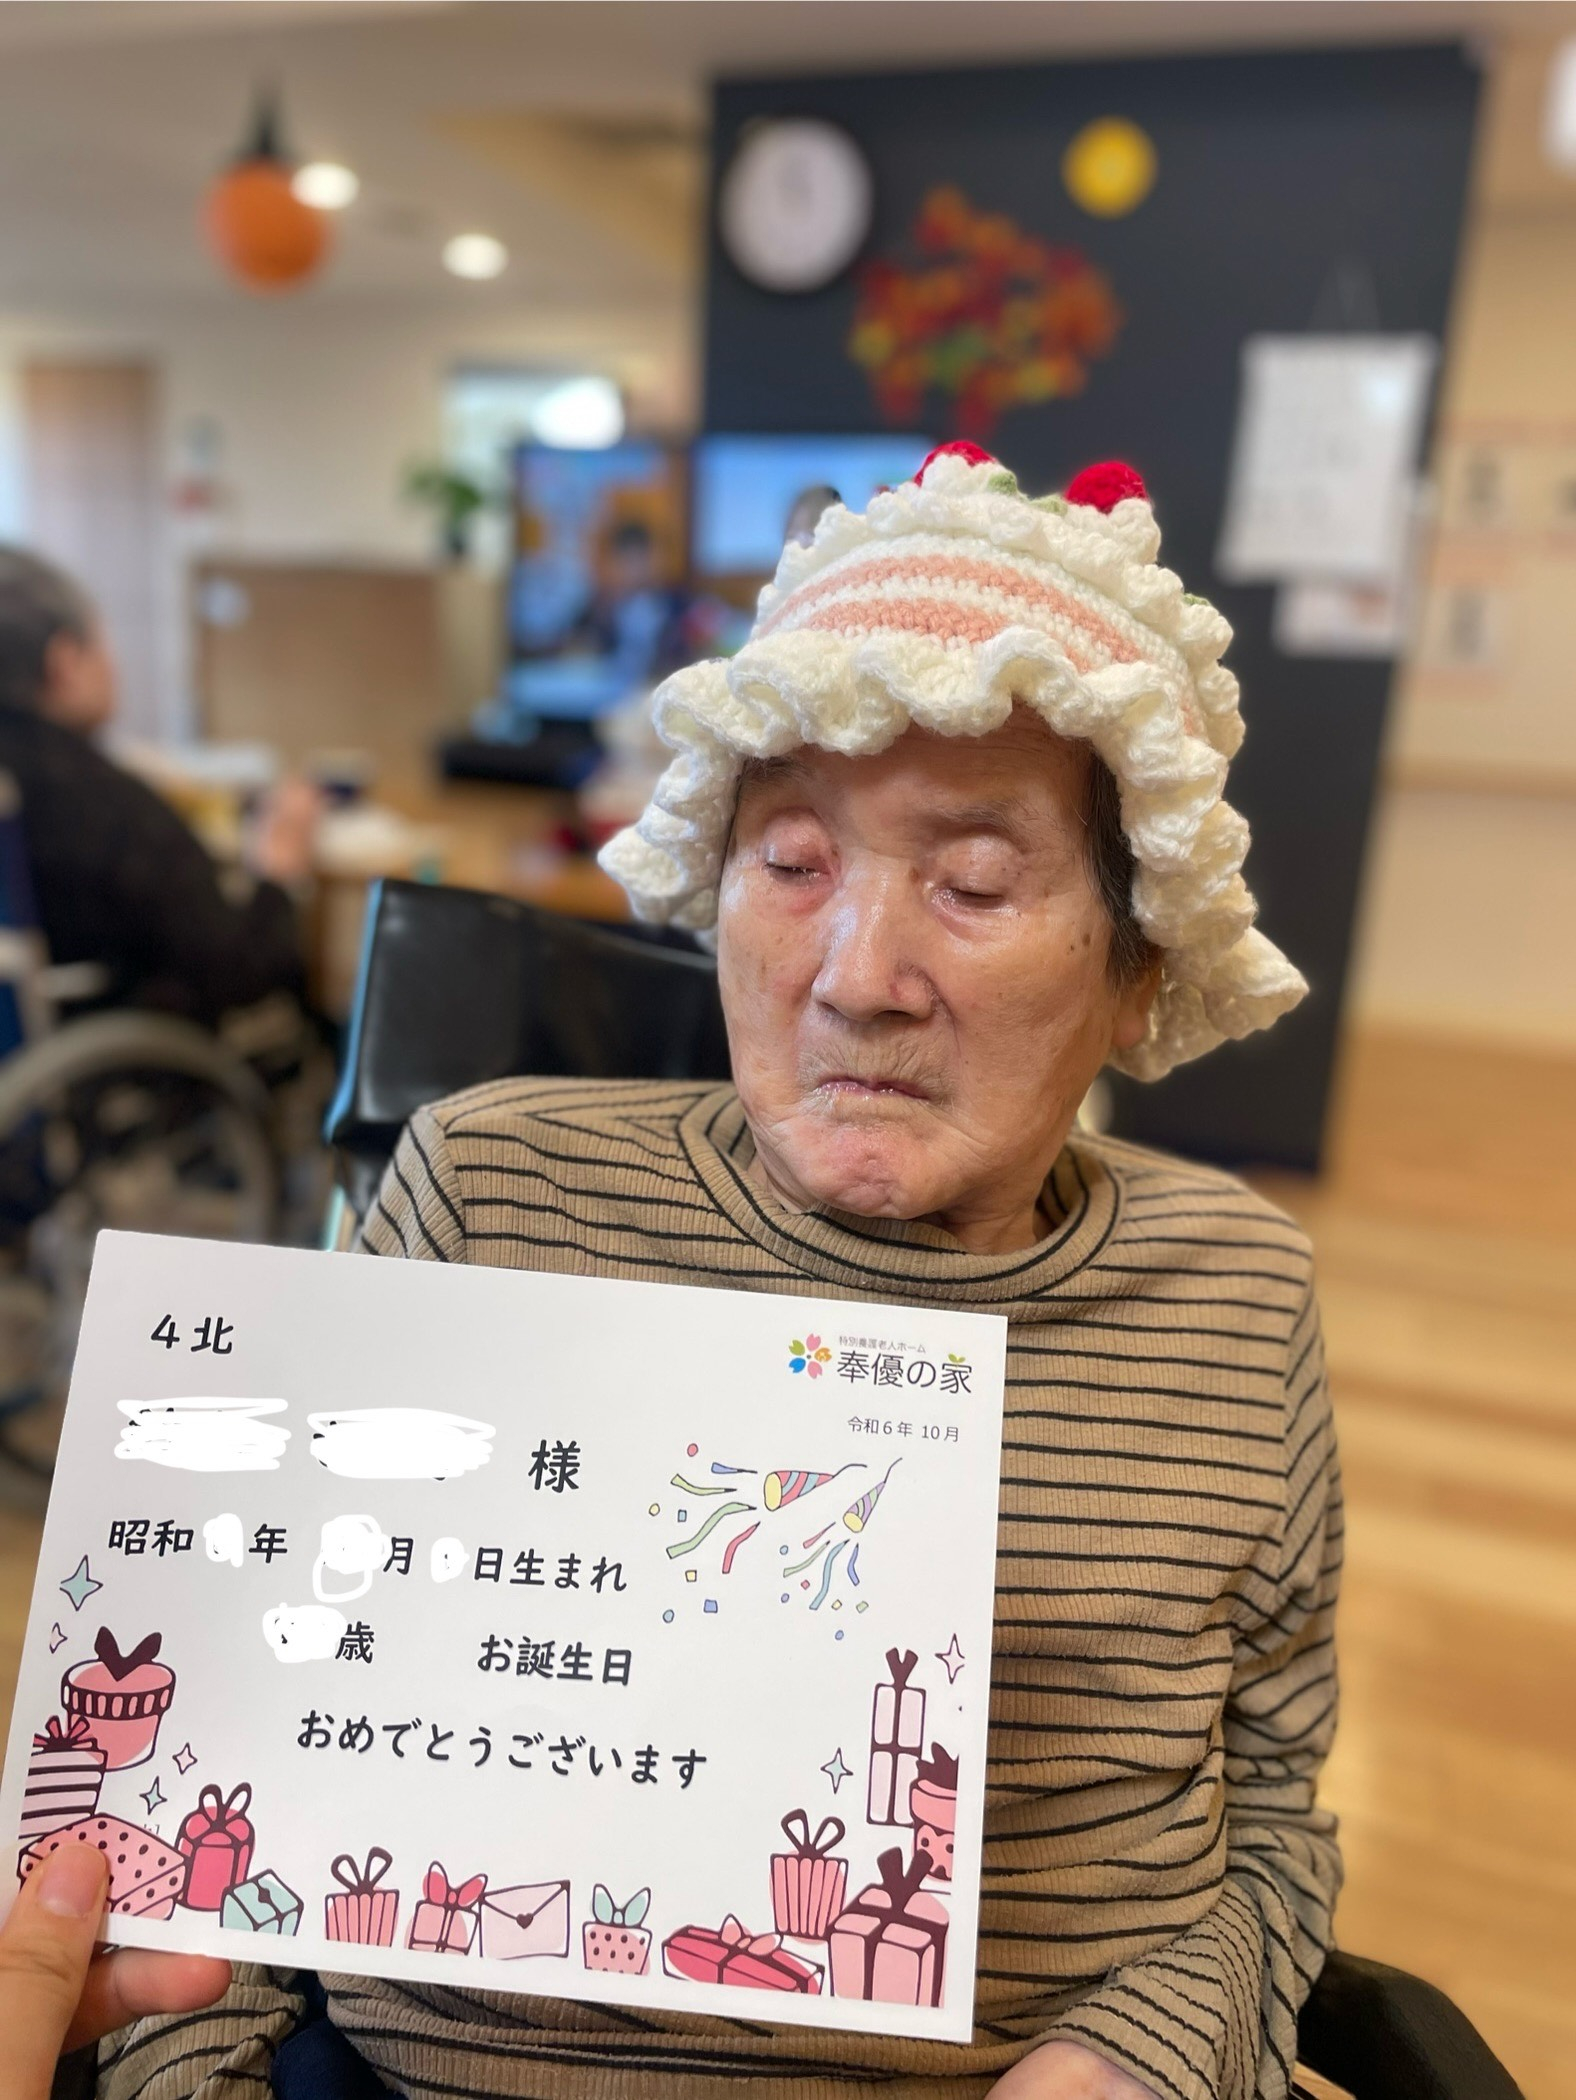 4北
特別養護老人ホーム
奉優の家
令和6年 10月
様
昭和 年 月 日生まれ
歳 お誕生日
おめでとうございます